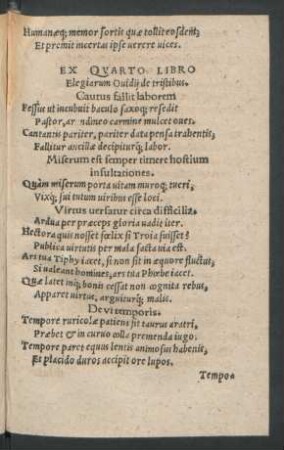 Humanæq; memor sortis quæ tollit eosdem;
Et premit incertas ipse uerere uices.
EX QVARTO LIBRO
Elegiarum Ouidij de tristibus.
Cantus fallit laborem
Fessus ut incubuit baculo saxoq; resedit
Pastor, arundineo carmine mulcet oues.
Cantantis pariter, pariter data pensa trahentis,
Fallitur ancillæ decipiturq; labor.
Miserum est semper timere hostium
insultationes.
Quàm miserum porta uitam muroq; tueri,
Vixq; sui tutum uiribus esse loci.
Virtus uersatur circa difficilia.
Ardua per præceps gloria uadit iter.
Hectora quis nosset fœlix si Troia fuisset?
Publica uirtutis per mala facta uia est.
Ars tua Tiphy iacet, si non sit in æquore fluctus,
Si ualeant homines, ars tua Phœbe iacet.
Quæ latet inq; bonis cessat non cognita rebus,
Apparet uirtus, arguiturq; malis.
De vi temporis.
Tempore ruricolæ patiens fit taurus aratri,
Præbet & incuruo colla premenda iugo.
Tempore paret equus lentis animosus habenis,
Et placido duros accipit ore lupos.
Tempo=